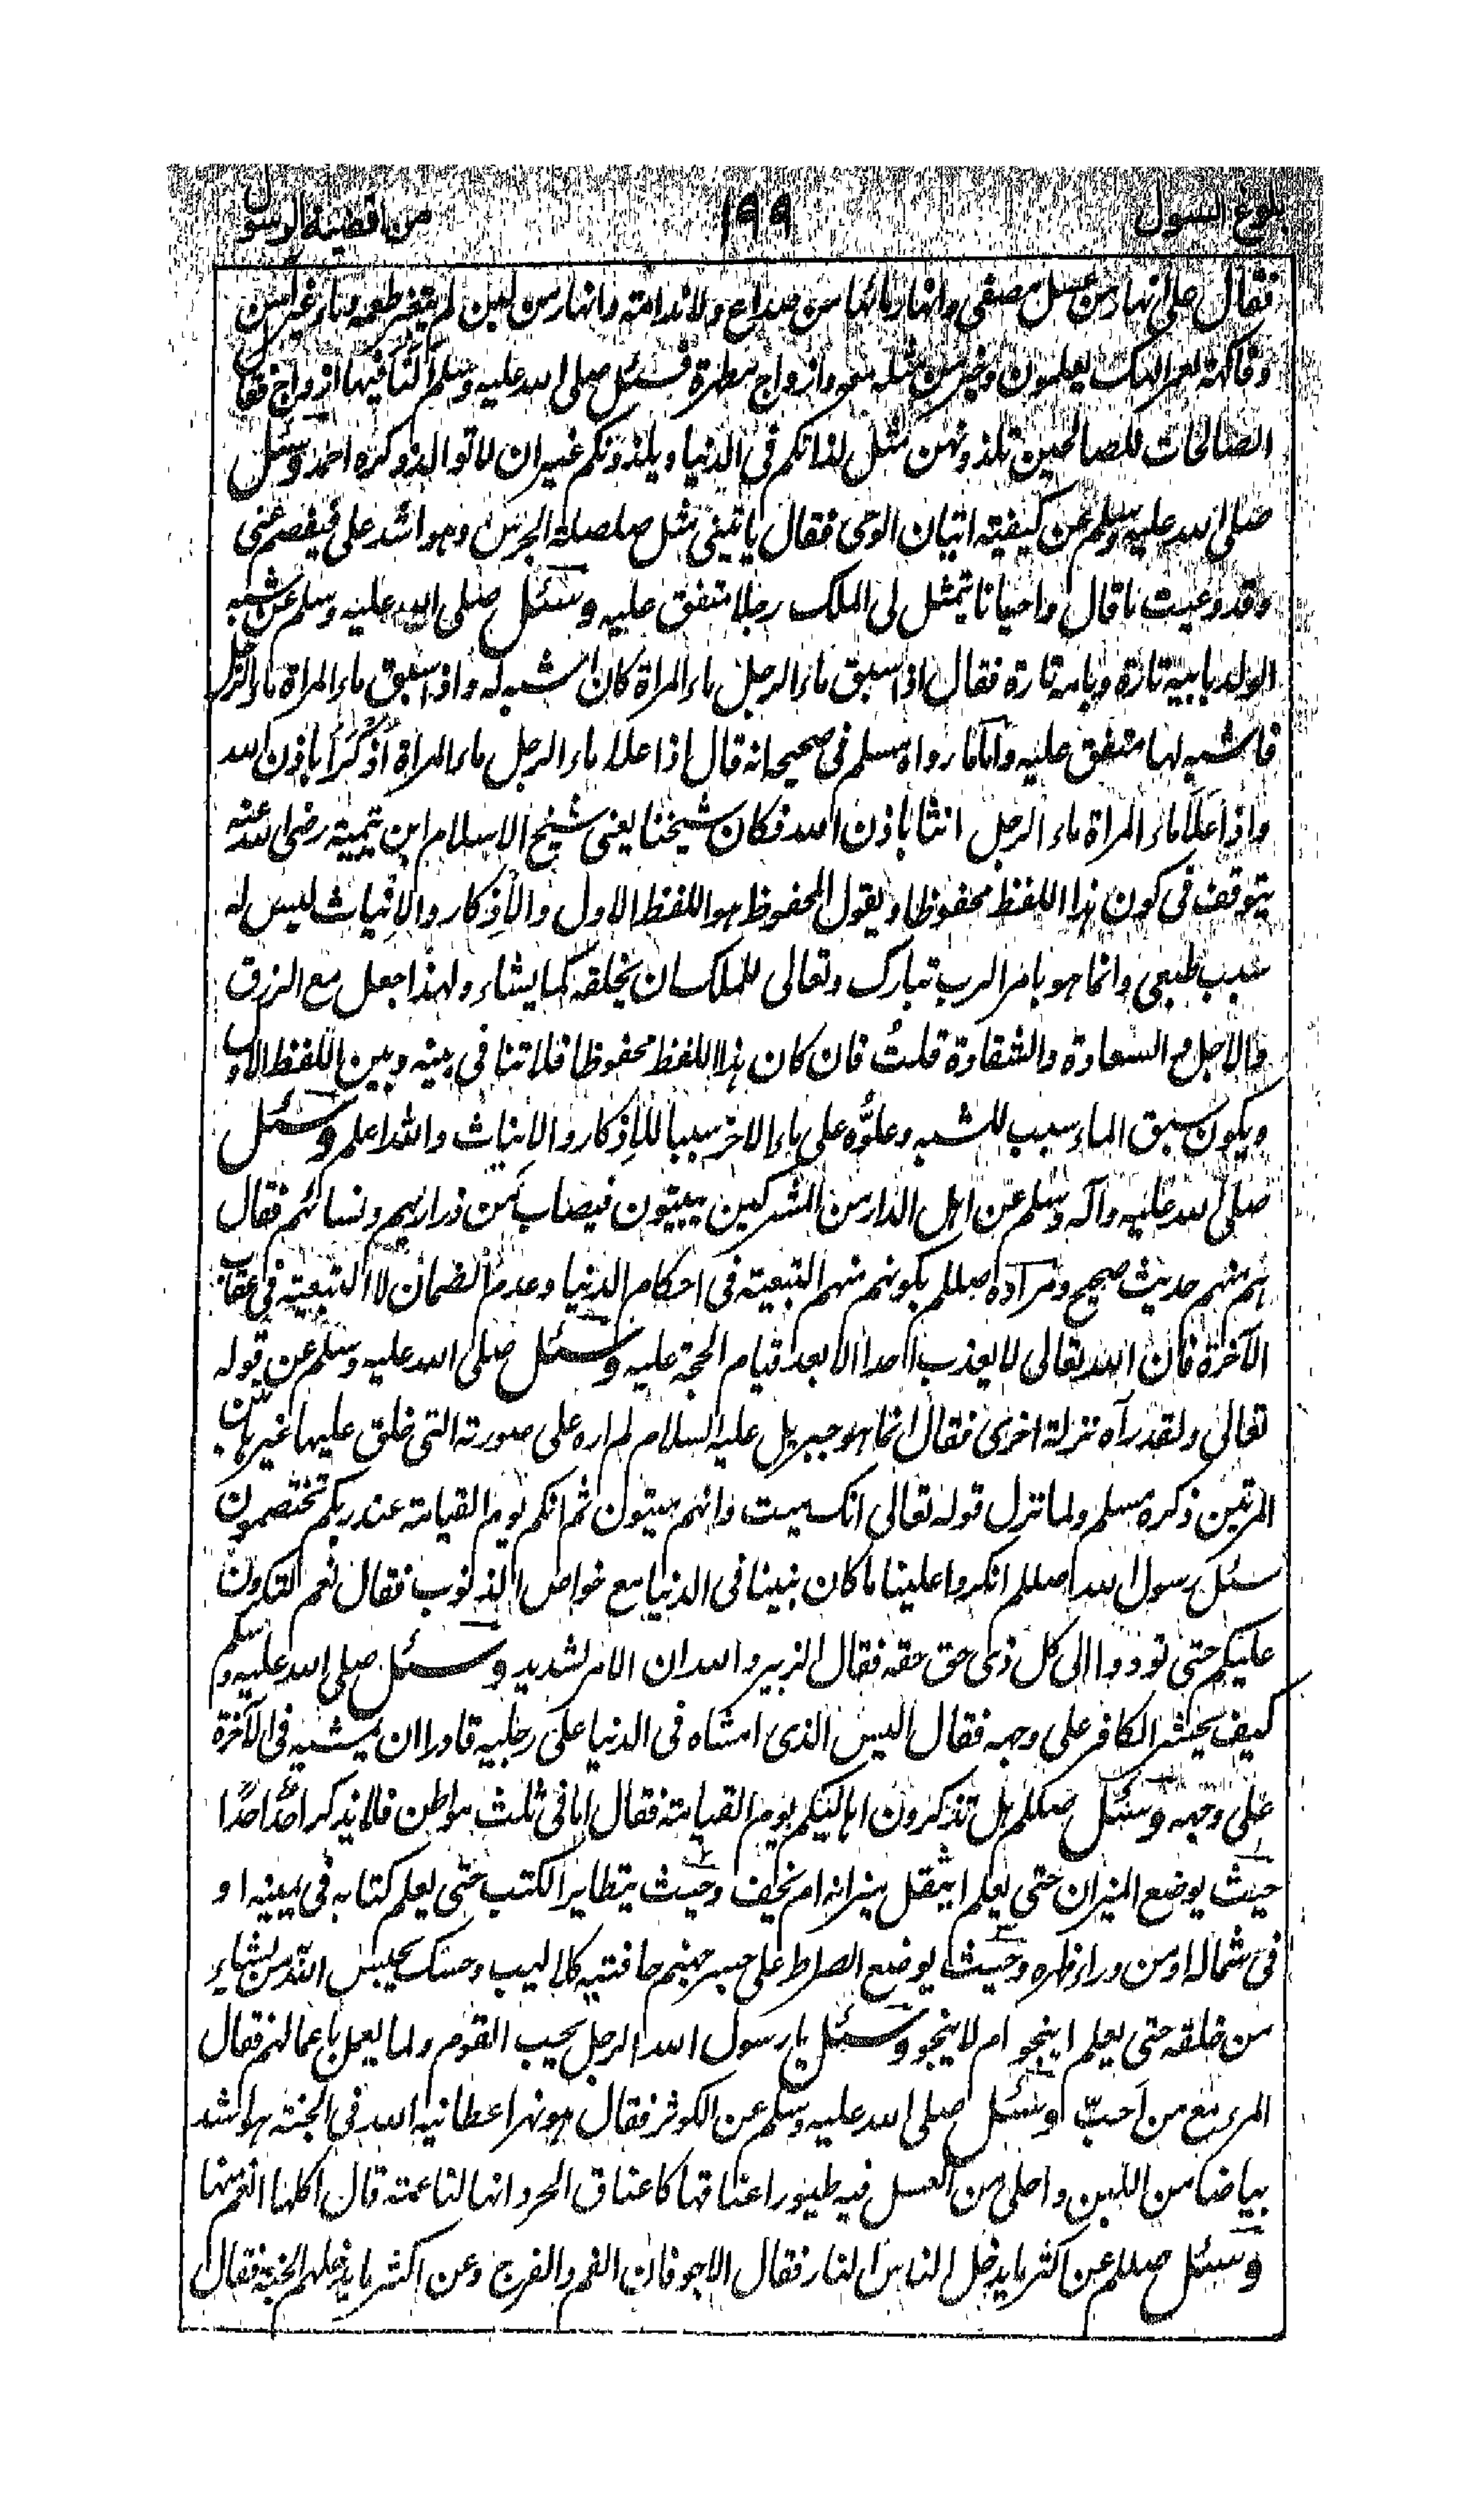 بلوغ السول ١٩٩ من اقضية الرسول
فقال على انهار من عسل مصفى وانهار ما بها من صداع ولا ندامة وانهار من لبن لم يتغير طعمه وماء غير آسن
وفاكهة لعمر الهك ما تعلمون وخير من مثله معه وازواج مطهرة فسئل صلى الله عليه وسلم ألنا فيها ازواج فقال
الصالحات للصالحين تلذونهن مثل لذاتكم فى الدنيا ويلذونكم غير ان لا توالد ذكره احمد وسئل
صلى الله عليه وسلم عن كيفية اتيان الوحى فقال ياتينى مثل صلصلة الجرس وهو اشد على فيفصم عنى
وقد وعيت ما قال واحيانا يتمثل لى الملك رجلا متفق عليه وسئل صلى الله عليه وسلم عن شبه
الولد بابيه تارة وبامه تارة فقال اذا سبق ماء الرجل ماء المراة كان الشبه له واذا سبق ماء المراة ماء الرجل
فالشبه لها متفق عليه واما ما رواه مسلم فى صحيحه انه قال اذا علا ماء الرجل ماء المراة أذكرا باذن الله
واذا علا ماء المراة ماء الرجل انثا باذن الله فكان شيخنا يعنى شيخ الاسلام ابن تيمية رضى الله عنه
يتوقف فى كون هذا اللفظ محفوظا ويقول المحفوظ هو اللفظ الاول والاذكار والايناث ليس له
سبب طبعى وانما هو بامر الرب تبارك وتعالى للملك ان يخلقه كما يشاء ولهذا جعل مع الرزق
والاجل مع السعادة والشقاوة قلت فان كان هذا اللفظ محفوظا فلا تنافى بينه وبين اللفظ الاول
ويكون سبق الماء سبب للشبه وعلوه على ماء الاخر سببا للاذكار والايناث والله اعلم وسئل
صلى الله عليه وآله وسلم عن اهل الدار من المشركين يبيتون فيصاب من ذراريهم ونسائهم فقال
هم منهم حديث صحيح ومراده صللم بكونهم منهم التبعية فى احكام الدنيا وعدم الضمان لا التبعية فى عقاب
الآخرة فان الله تعالى لا يعذب احدا الا بعد قيام الحجة عليه وسئل صلى الله عليه وسلم عن قوله
تعالى ولقد رآه نزلة اخرى فقال انما هو جبريل عليه السلام لم اره على صورته التى خلق عليها غير هاتين
المرتين ذكره مسلم ولما نزل قوله تعالى انك ميت وانهم ميتون ثم انكم يوم القيامة عند ربكم تختصمون
سئل رسول الله صللم انكروا علينا ما كان بيننا فى الدنيا مع خواص الذنوب فقال نعم لتكررن
عليكم حتى تودوا الى كل ذى حق حقه فقال الزبير والله ان الامر لشديد وسئل صلى الله عليه وسلم
كيف يحشر الكافر على وجهه فقال اليس الذى امشاه فى الدنيا على رجليه قادرا ان يمشيه فى الآخرة
على وجهه وسئل صللم هل تذكرون اهاليكم يوم القيامة فقال اما فى ثلث مواطن فلا يذكر احد احدا
حيث يوضع الميزان حتى يعلم ايثقل ميزانه ام يخف وحيث يتطاير الكتب حتى يعلم كتابه فى يمينه او
فى شماله او من وراء ظهره وحيث يوضع الصراط على جسر جهنم حافتيه كلاليب وحسك يحبس الله من يشاء
من خلقه حتى يعلم اينجو ام لا ينجو وسئل يا رسول الله الرجل يحب القوم ولما يعمل باعمالهم فقال
المرء مع من احبّ وسئل صلى الله عليه وسلم عن الكوثر فقال هو نهر اعطانيه الله فى الجنة هو اشد
بياضا من اللبن واحلى من العسل فيه طيور اعناقها كاعناق الجزر وانها لناعمة قال اكلها انعم منها
وسئل صللم عن اكثر ما يدخل الناس النار فقال الاجوفان الفم والفرج وعن اكثر ما يدخلهم الجنة فقال